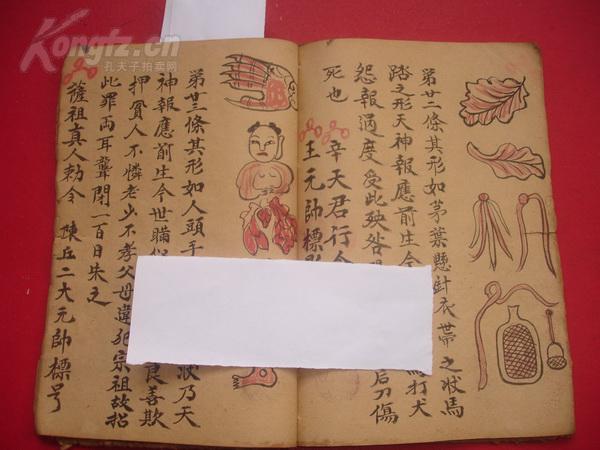 Kongfz.cn
孔夫子拍卖网
第廿二條其形如茅葉懸針衣帶之狀馬
踏之形天神報應前生今 打犬
怨報過度受此殃咎 后刀傷
死也
辛天君行令
王元帥標
第廿三條其形如人頭手 狀乃天
神報應前生今世瞞 良善欺
押貧人不憐老少不孝父母違犯宗祖故招
此罪両耳聾閉一百日朱之
薩祖真人勅令 陳丘二大元帥標号